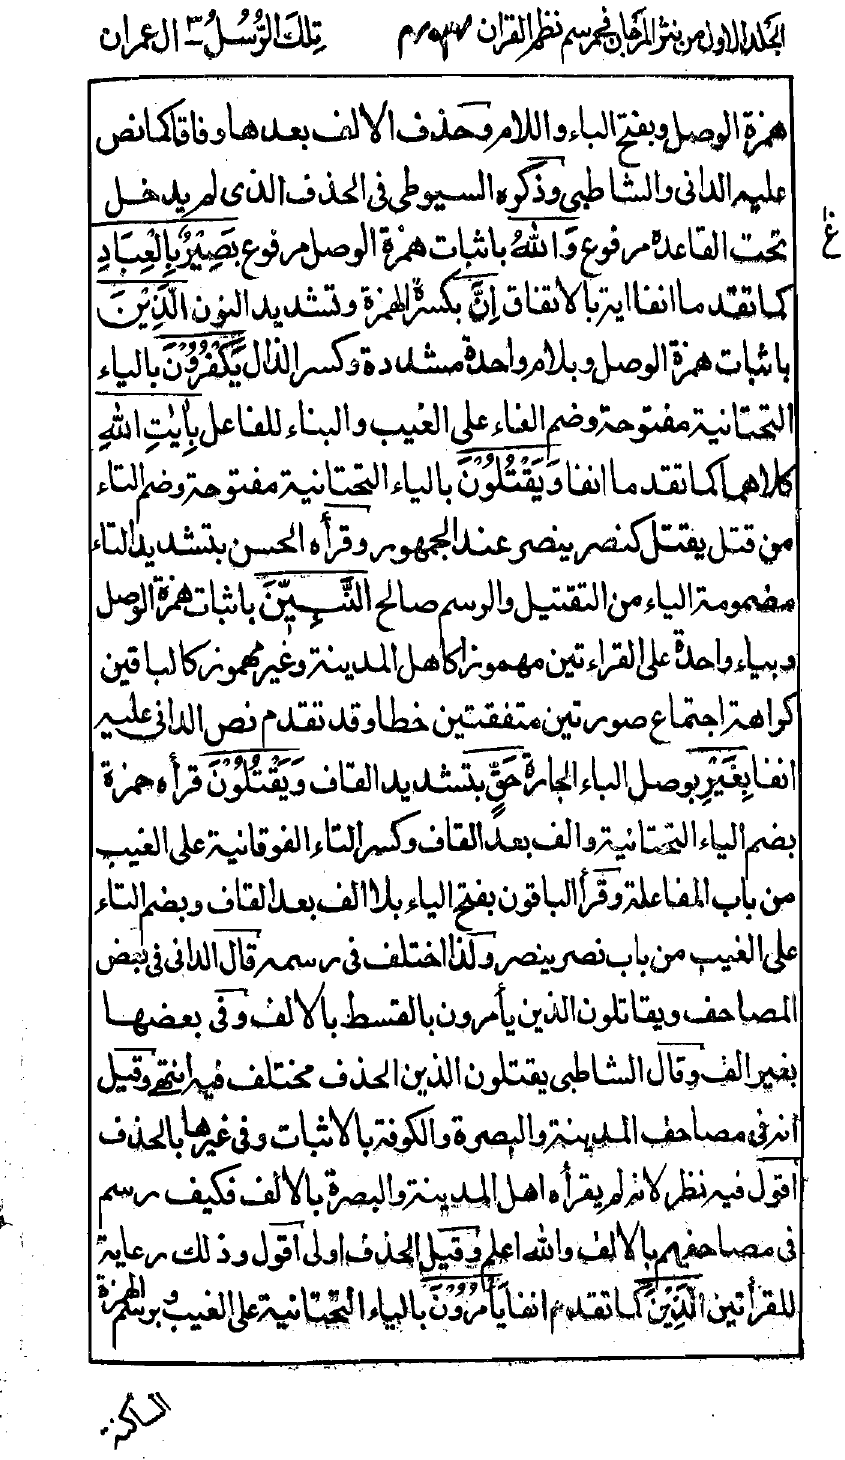 الجلد الاول من نثر المرجان فى رسم نظم القران تلك الرسل ٣ ال عمران
همزة الوصل وبفتح الباء واللام وحذف الالف بعدها وفاقا كما نص
عليه الدانى والشاطبى وذكره السيوطى فى الحذف الذى لم يدخل
تحت القاعدة مرفوع وَاللهُ باثبات همزة الوصل مرفوع بَصِيْرٌ بِالْعِبَادِ
غ
كما تقدما انفا اية بالاتفاق اِنَّ بكسرة الهمزة وتشديد النون الَّذِيْنَ
باثبات همزة الوصل وبلام واحدة مشددة وكسر الذال يَكْفُرُوْنَ بالياء
التحتانية مفتوحة وضم الفاء على الغيب والبناء للفاعل بِاٰيٰتِ اللهِ
كلاهما كما تقدما انفا وَيَقْتُلُوْنَ بالياء التحتانية مفتوحة وضم التاء
من قتل يقتل كنصر ينصر عند الجمهور وقرأه الحسن بتشديد التاء
مضمومة الياء من التقتيل والرسم صالح النَّبِيّٖنَ باثبات همزة الوصل
وبياء واحدة على القراءتين مهموزا كاهل المدينة وغير مهموز كالباقين
كراهة اجتماع صورتين متفقتين خطا وقد تقدم نص الدانى عليه
انفا بِغَيْرِ بوصل الباء الجارة حَقٍّ بتشديد القاف وَيَقْتُلُوْنَ قرأه حمزة
بضم الياء التحتانية والف بعد القاف وكسر التاء الفوقانية على الغيب
من باب المفاعلة وقرأ الباقون بفتح الياء بلا الف بعد القاف وبضم التاء
على الغيب من باب نصر ينصر ولذا اختلف فى رسمه قال الدانى فى بعض
المصاحف ويقاتلون الذين يأمرون بالقسط بالالف وفى بعضها
بغير الف وقال الشاطبى يقتلون الذين الحذف مختلف فيه انتهى وقيل
انه فى مصاحف المدينة والبصرة والكوفة بالاثبات وفى غيرها بالحذف
اقول فيه نظر لانه لم يقرأه اهل المدينة والبصرة بالالف فكيف رسم
فى مصاحفهم بالالف والله اعلم وقيل الحذف اولى اقول وذلك رعاية
للقرأتين الَّذِيْنَ كما تقدم انفا يَأْمُرُوْنَ بالياء التحتانية على الغيب وبرسم الهمزة
الساكنة